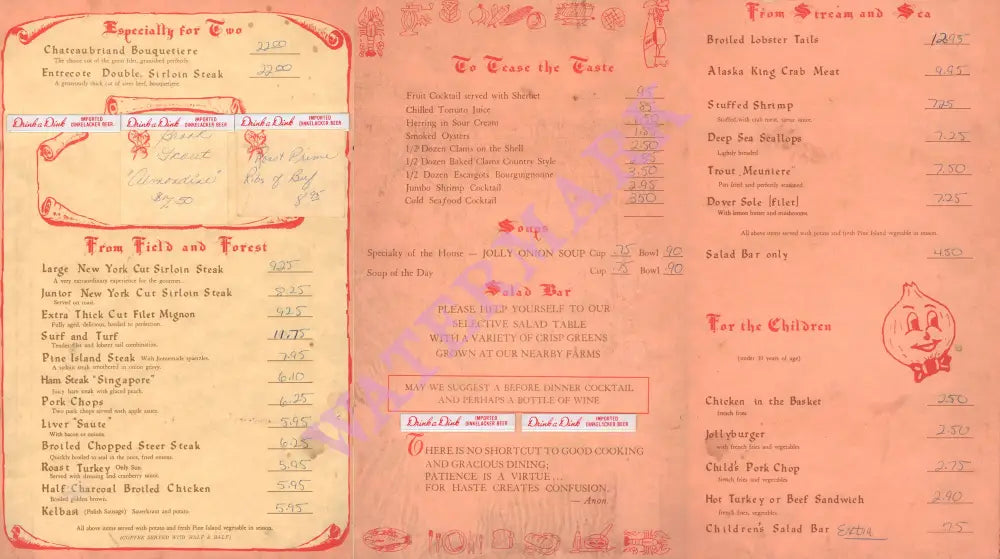 Especially for Two
Chateaubriand Bouquetiere 22.00
The choice cut of the great filet, garnished perfectly.
Entrecote Double, Sirloin Steak 22.00
A generously thick cut of sirloin beef, bouquetiere.
Drink a Dink IMPORTED DINKELACKER BEER
Drink a Dink IMPORTED DINKELACKER BEER
Drink a Dink IMPORTED DINKELACKER BEER
Brook
Trout
"Almondine"
$7.50
Roast Prime
Ribs of Beef
8.95
From Field and Forest
Large New York Cut Sirloin Steak 9.25
A very extraordinary experience for the gourmet.
Junior New York Cut Sirloin Steak 8.25
Served on toast.
Extra Thick Cut Filet Mignon 9.25
Fully aged, delicious, broiled to perfection.
Surf and Turf 11.75
Tender filet and lobster tail combination.
Pine Island Steak With homemade spaetzles. 7.95
A sirloin steak smothered in onion gravy.
Ham Steak "Singapore" 6.10
Juicy ham steak with glazed peach.
Pork Chops 6.25
Two pork chops served with apple sauce.
Liver "Saute" 5.95
With bacon or onions.
Broiled Chopped Steer Steak 6.25
Quickly broiled to seal in the juice, fried onions.
Roast Turkey Only Sun. 5.95
Served with dressing and cranberry sauce.
Half Charcoal Broiled Chicken 5.95
Broiled golden brown.
Kelbasi (Polish Sausage) Sauerkraut and potato. 5.95
All above items served with potato and fresh Pine Island vegetable in season.
(COFFEE SERVED WITH HALF & HALF)
To Tease the Taste
Fruit Cocktail served with Sherbet .95
Chilled Tomato Juice .85
Herring in Sour Cream 1.50
Smoked Oysters
1/2 Dozen Clams on the Shell 2.50
1/2 Dozen Baked Clams Country Style .95
1/2 Dozen Escargots Bourguignonne 3.50
Jumbo Shrimp Cocktail 2.95
Cold Seafood Cocktail 3.50
Soups
Specialty of the House — JOLLY ONION SOUP Cup .75 Bowl .90
Soup of the Day Cup .75 Bowl .90
Salad Bar
PLEASE HELP YOURSELF TO OUR
SELECTIVE SALAD TABLE
WITH A VARIETY OF CRISP GREENS
GROWN AT OUR NEARBY FARMS
MAY WE SUGGEST A BEFORE DINNER COCKTAIL
AND PERHAPS A BOTTLE OF WINE
Drink a Dink IMPORTED DINKELACKER BEER
Drink a Dink IMPORTED DINKELACKER BEER
THERE IS NO SHORTCUT TO GOOD COOKING
AND GRACIOUS DINING;
PATIENCE IS A VIRTUE...
FOR HASTE CREATES CONFUSION.
— Anon.
From Stream and Sea
Broiled Lobster Tails 12.95
Alaska King Crab Meat 9.95
Stuffed Shrimp 7.25
Stuffed with crab meat, sauce.
Deep Sea Scallops 7.25
Lightly breaded
Trout "Meuniere" 7.50
Pan fried and perfectly seasoned.
Dover Sole [filet] 7.25
With lemon butter and mushrooms.
All above items served with potato and fresh Pine Island vegetable in season.
Salad Bar only 4.50
For the Children
(under 10 years of age)
Chicken in the Basket 2.50
french fries
Jollyburger 2.50
with french fries and vegetables
Child's Pork Chop 2.75
french fries and vegetables
Hot Turkey or Beef Sandwich 2.90
french fries, vegetables.
Children's Salad Bar Extra .75
WATERMARK